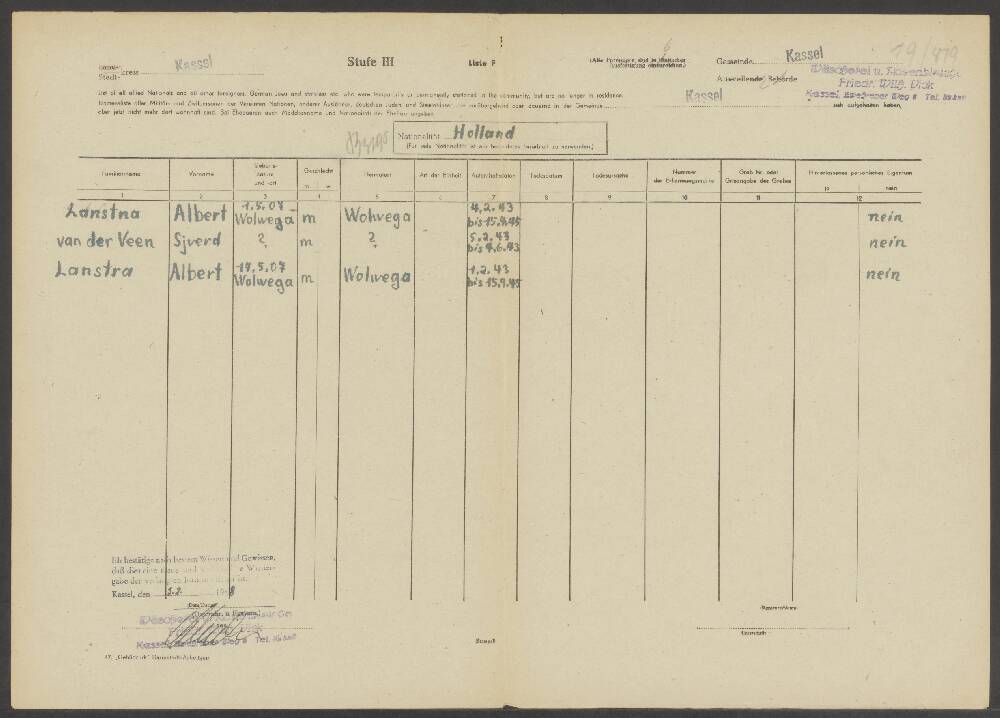 19/479
Stadt- kreis Kassel
Stufe III
Liste F
Gemeinde Kassel
Ausstellende Behörde
Wäscherei u. 
Friedr. Wilh. Dick
Kassel, Weg 8 Tel.
List of all allied Nationals and all other foreigners, German Jews and stateless etc. who were temporarily or permanently stationed in the community, but are no longer in residence.
Namensliste aller Militär- und Zivilpersonen der Vereinten Nationen, anderer Ausländer, deutscher Juden und Staatenloser die vorübergehend oder dauernd in der Gemeinde Kassel sich aufgehalten haben,
aber jetzt nicht mehr dort wohnhaft sind. Bei Ehefrauen auch Mädchenname und Nationalität des Ehemannes angeben
Nationalität Holland
(Für jede Nationalität ist ein besonderes Formblatt zu verwenden.)
Familienname Vorname Geburts-datum und -ort Geschlecht m w Heimatort Art der Einheit Aufenthaltsdaten Todesdatum Todesursache Nummer der Erkennungsmarke Grab Nr. oder Ortsangabe des Grabes Hinterlassenes persönliches Eigentum ja nein
1 2 3 4 5 6 7 8 9 10 11 12
Lanstna Albert 1.5.07 Wolwega m Wolwega 4.2.43 bis 15.9.45 nein
van der Veen Sjverd ? m ? 5.2.43 bis 4.6.43 nein
Lanstra Albert 17.5.07 Wolwega m Wolwega 1.2.43 bis 15.9.45 nein
Ich bestätige nach bestem Wissen und Gewissen,
Kassel, den 2.2. 1948
(Datum)
Friedr. Dick
Kassel, Weg 8 Tel.
(Unterschrift)